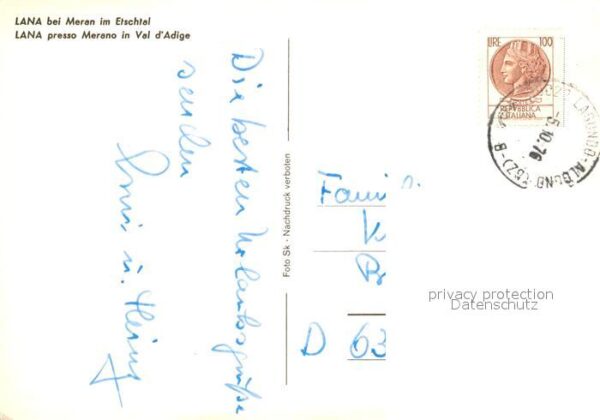 LANA bei Meran im Etschtal
LANA presso Merano in Val d'Adige
Die besten Urlaubsgrüße
senden
u. Heinz
Foto Sk · Nachdruck verboten
LIRE 100
REPVBBLICA
ITALIANA
LAGUNDO-ALGUND (BZ)-B
-5.10.76
Fami
K
D 63
privacy protection
Datenschutz